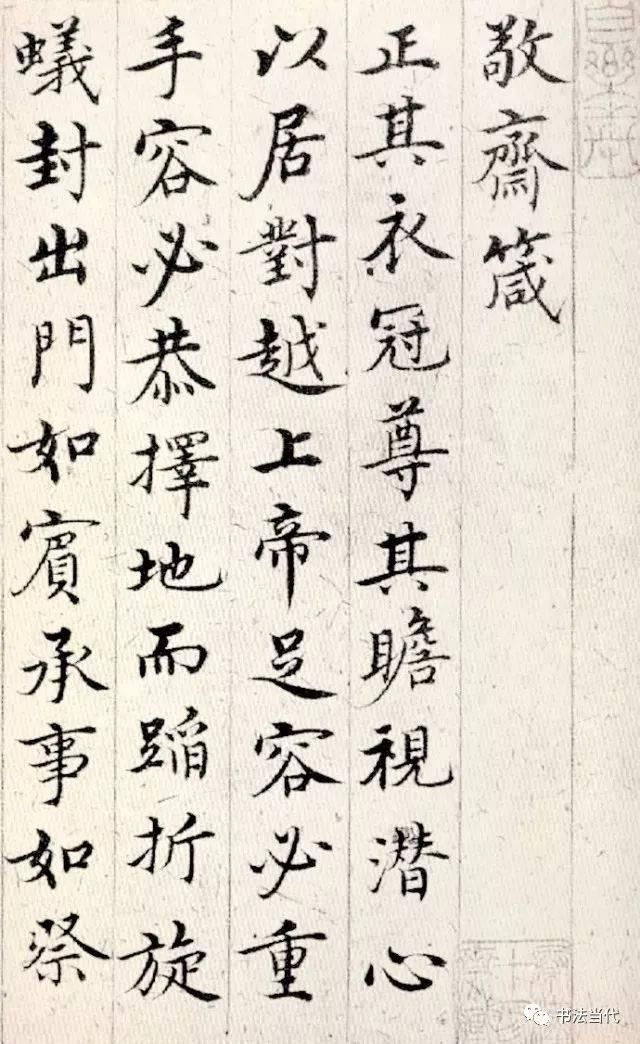 敬齋箴
正其衣冠尊其瞻視潛心
以居對越上帝足容必重
手容必恭擇地而蹈折旋
蟻封出門如賓承事如祭
书法当代